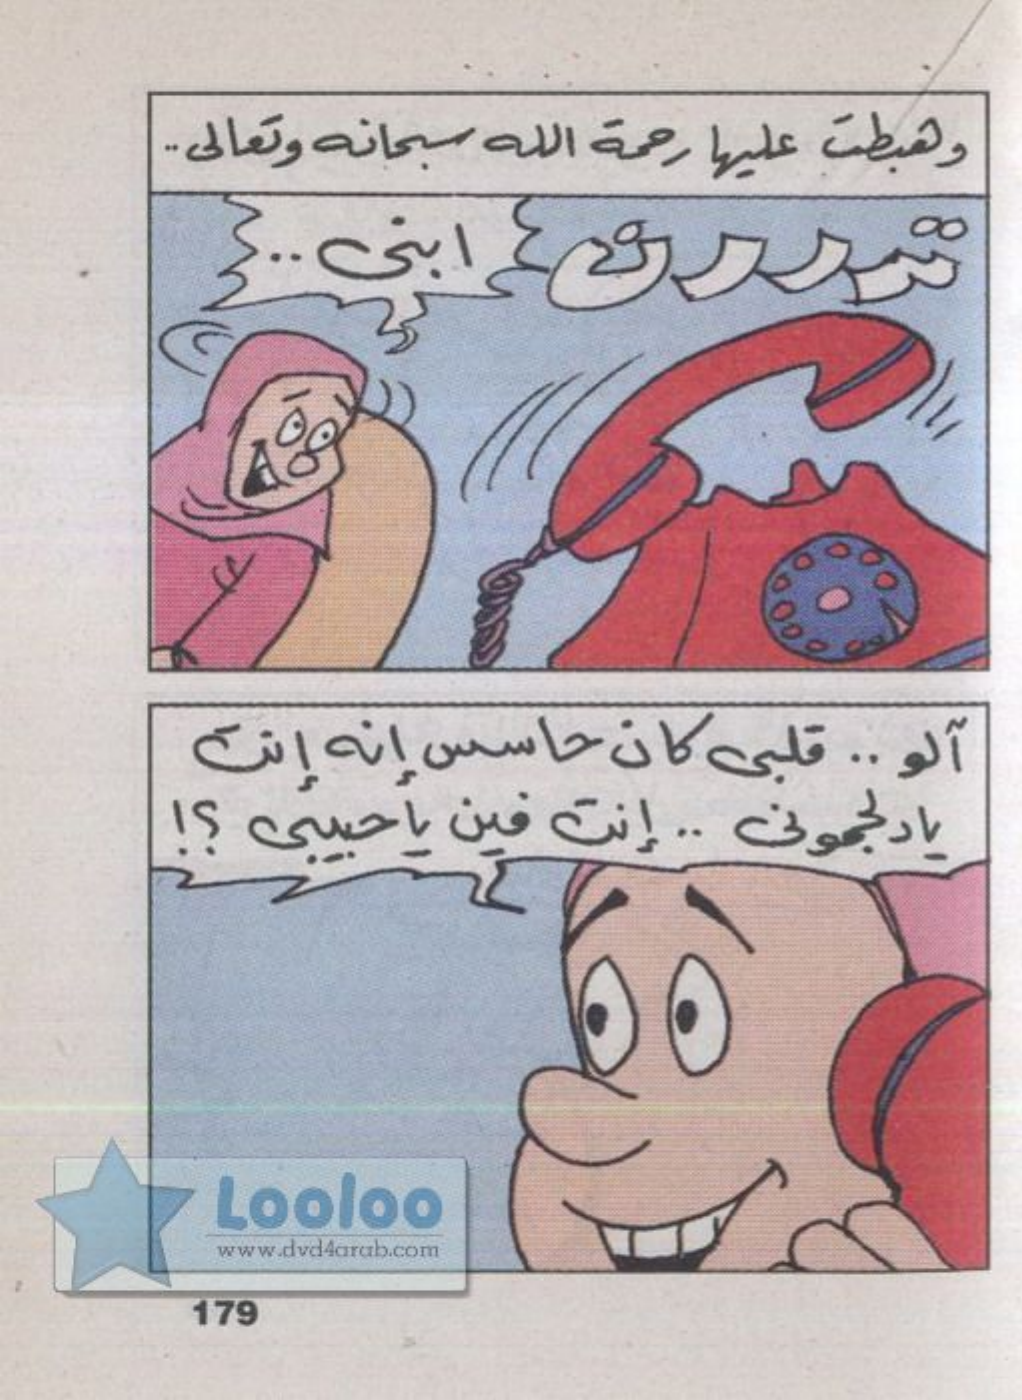 وهبطت عليها رحمة الله سبحانه وتعالى..
تررررن
ابنى ..
آلو .. قلبى كان حاسس إنه إنت
يا دلجمونى .. إنت فين يا حبيبى ؟!
Looloo
www.dvd4arab.com
179